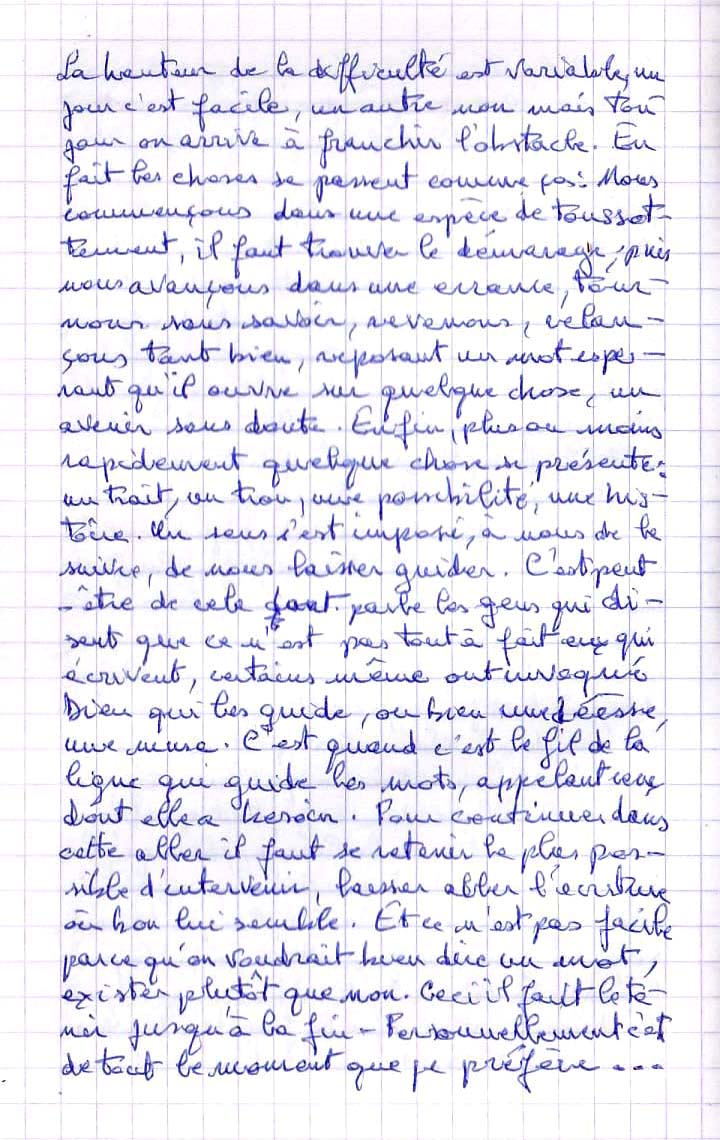 La hauteur de la difficulté est variable, un
jour c'est facile, un autre non mais tou-
jour on arrive à franchir l'obstacle. En
fait les choses se passent comme ças: Nous
commençons dans une espèce de toussot-
tement, il faut trouver le démarage, puis
nous avançons dans une errance, tour-
nons sans savoir, revenons, relan-
çons tant bien, reposant un mot espé-
rant qu'il ouvre sur quelque chose, un
avenir sans doute. Enfin, plus ou moins
rapidement quelque chose se présente:
un trait, un trou, une possibilité, une his-
toire. Un sens s'est imposé, à nous de le
suivre, de nous laisser guider. C'est peut
-être de cela dont parle les gens qui di-
sent que ce n'est pas tout à fait eux qui
écrivent, certains même ont invoqué
Dieu qui les guide, ou bien une déesse,
une muse. C'est quand c'est le fil de la
ligne qui guide les mots, appelant ceux
dont elle a besoin. Pour continuer dans
cette aller il faut se retenir le plus pos-
sible d'intervenir, laisser aller l'écriture
où bon lui semble. Et ce n'est pas facile
parce qu'on voudrait bien dire un mot,
exister plutôt que non. Ceci il fault le te-
nir jusqu'à la fin - Personnellement c'est
de tout le moment que je préfère ...